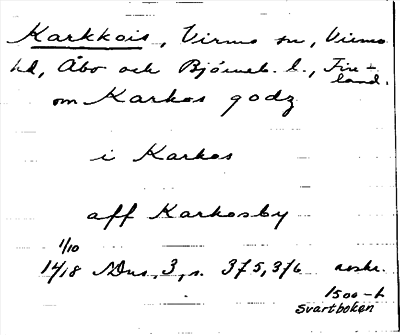 Karkkois, Virmo sn, Virmo
hd, Åbo och Björneb. l., Fin-
land.
om Karkos godz
i Karkos
aff Karkosby
1/10
1418 Dns, 3, s. 375, 376 avskr.
1500-t
Svartboken